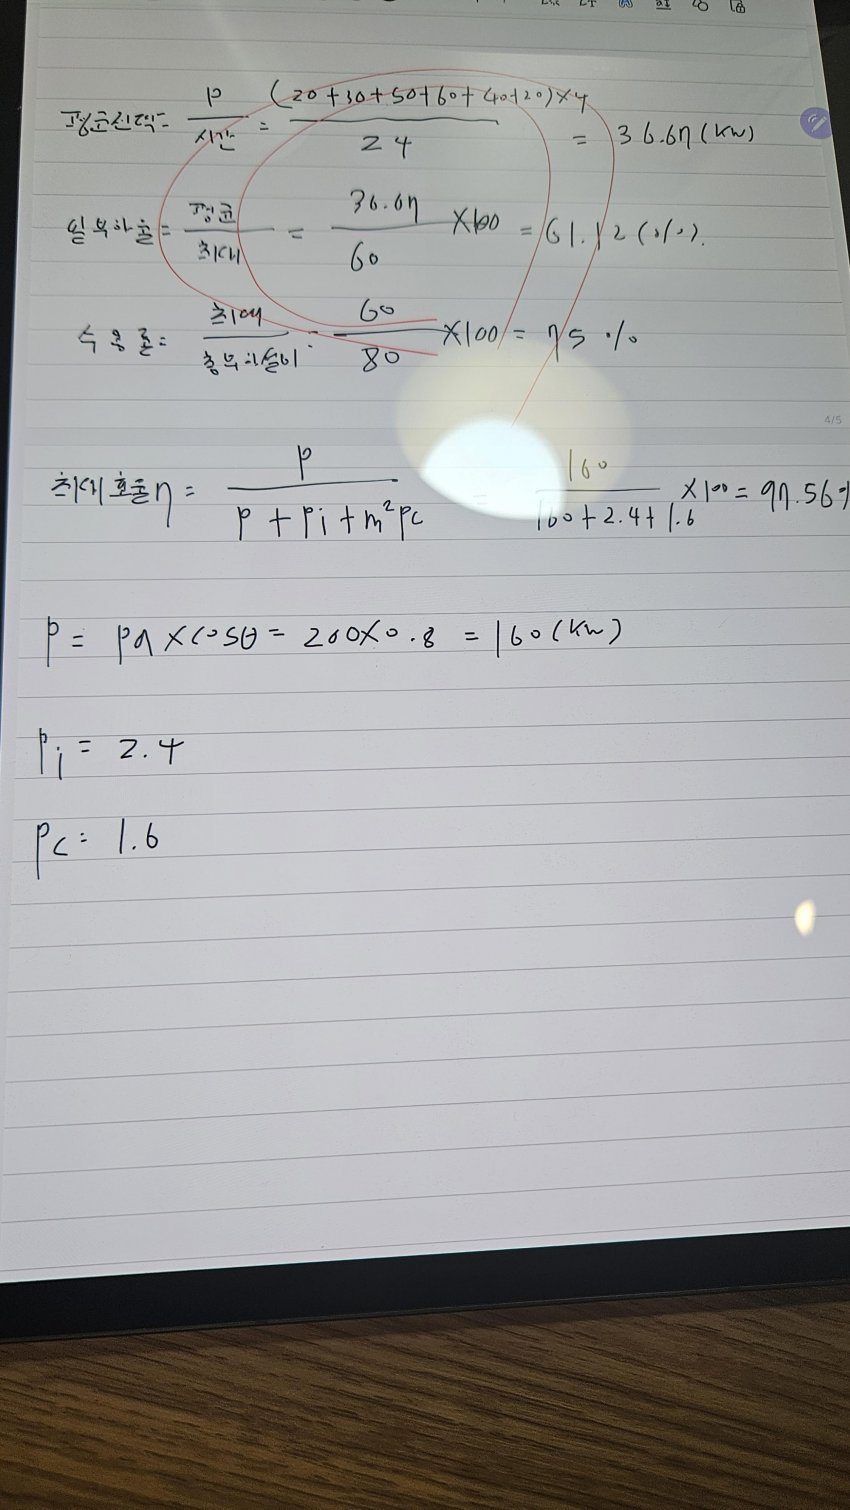 평균전력= P/시간 = (20+30+50+60+40+20)×4 / 24 = 36.67(kW)
일부하율= 평균/최대 = 36.67/60 ×100 = 61.12(%).
수용률= 최대/총부하설비 = 60/80 ×100 = 75%
4/5
최대효율η = P / P+Pi+m²Pc = 160 / 160+2.4+1.6 ×100 = 97.56%
P = Pa×cosθ = 200×0.8 = 160(kW)
Pi = 2.4
Pc = 1.6